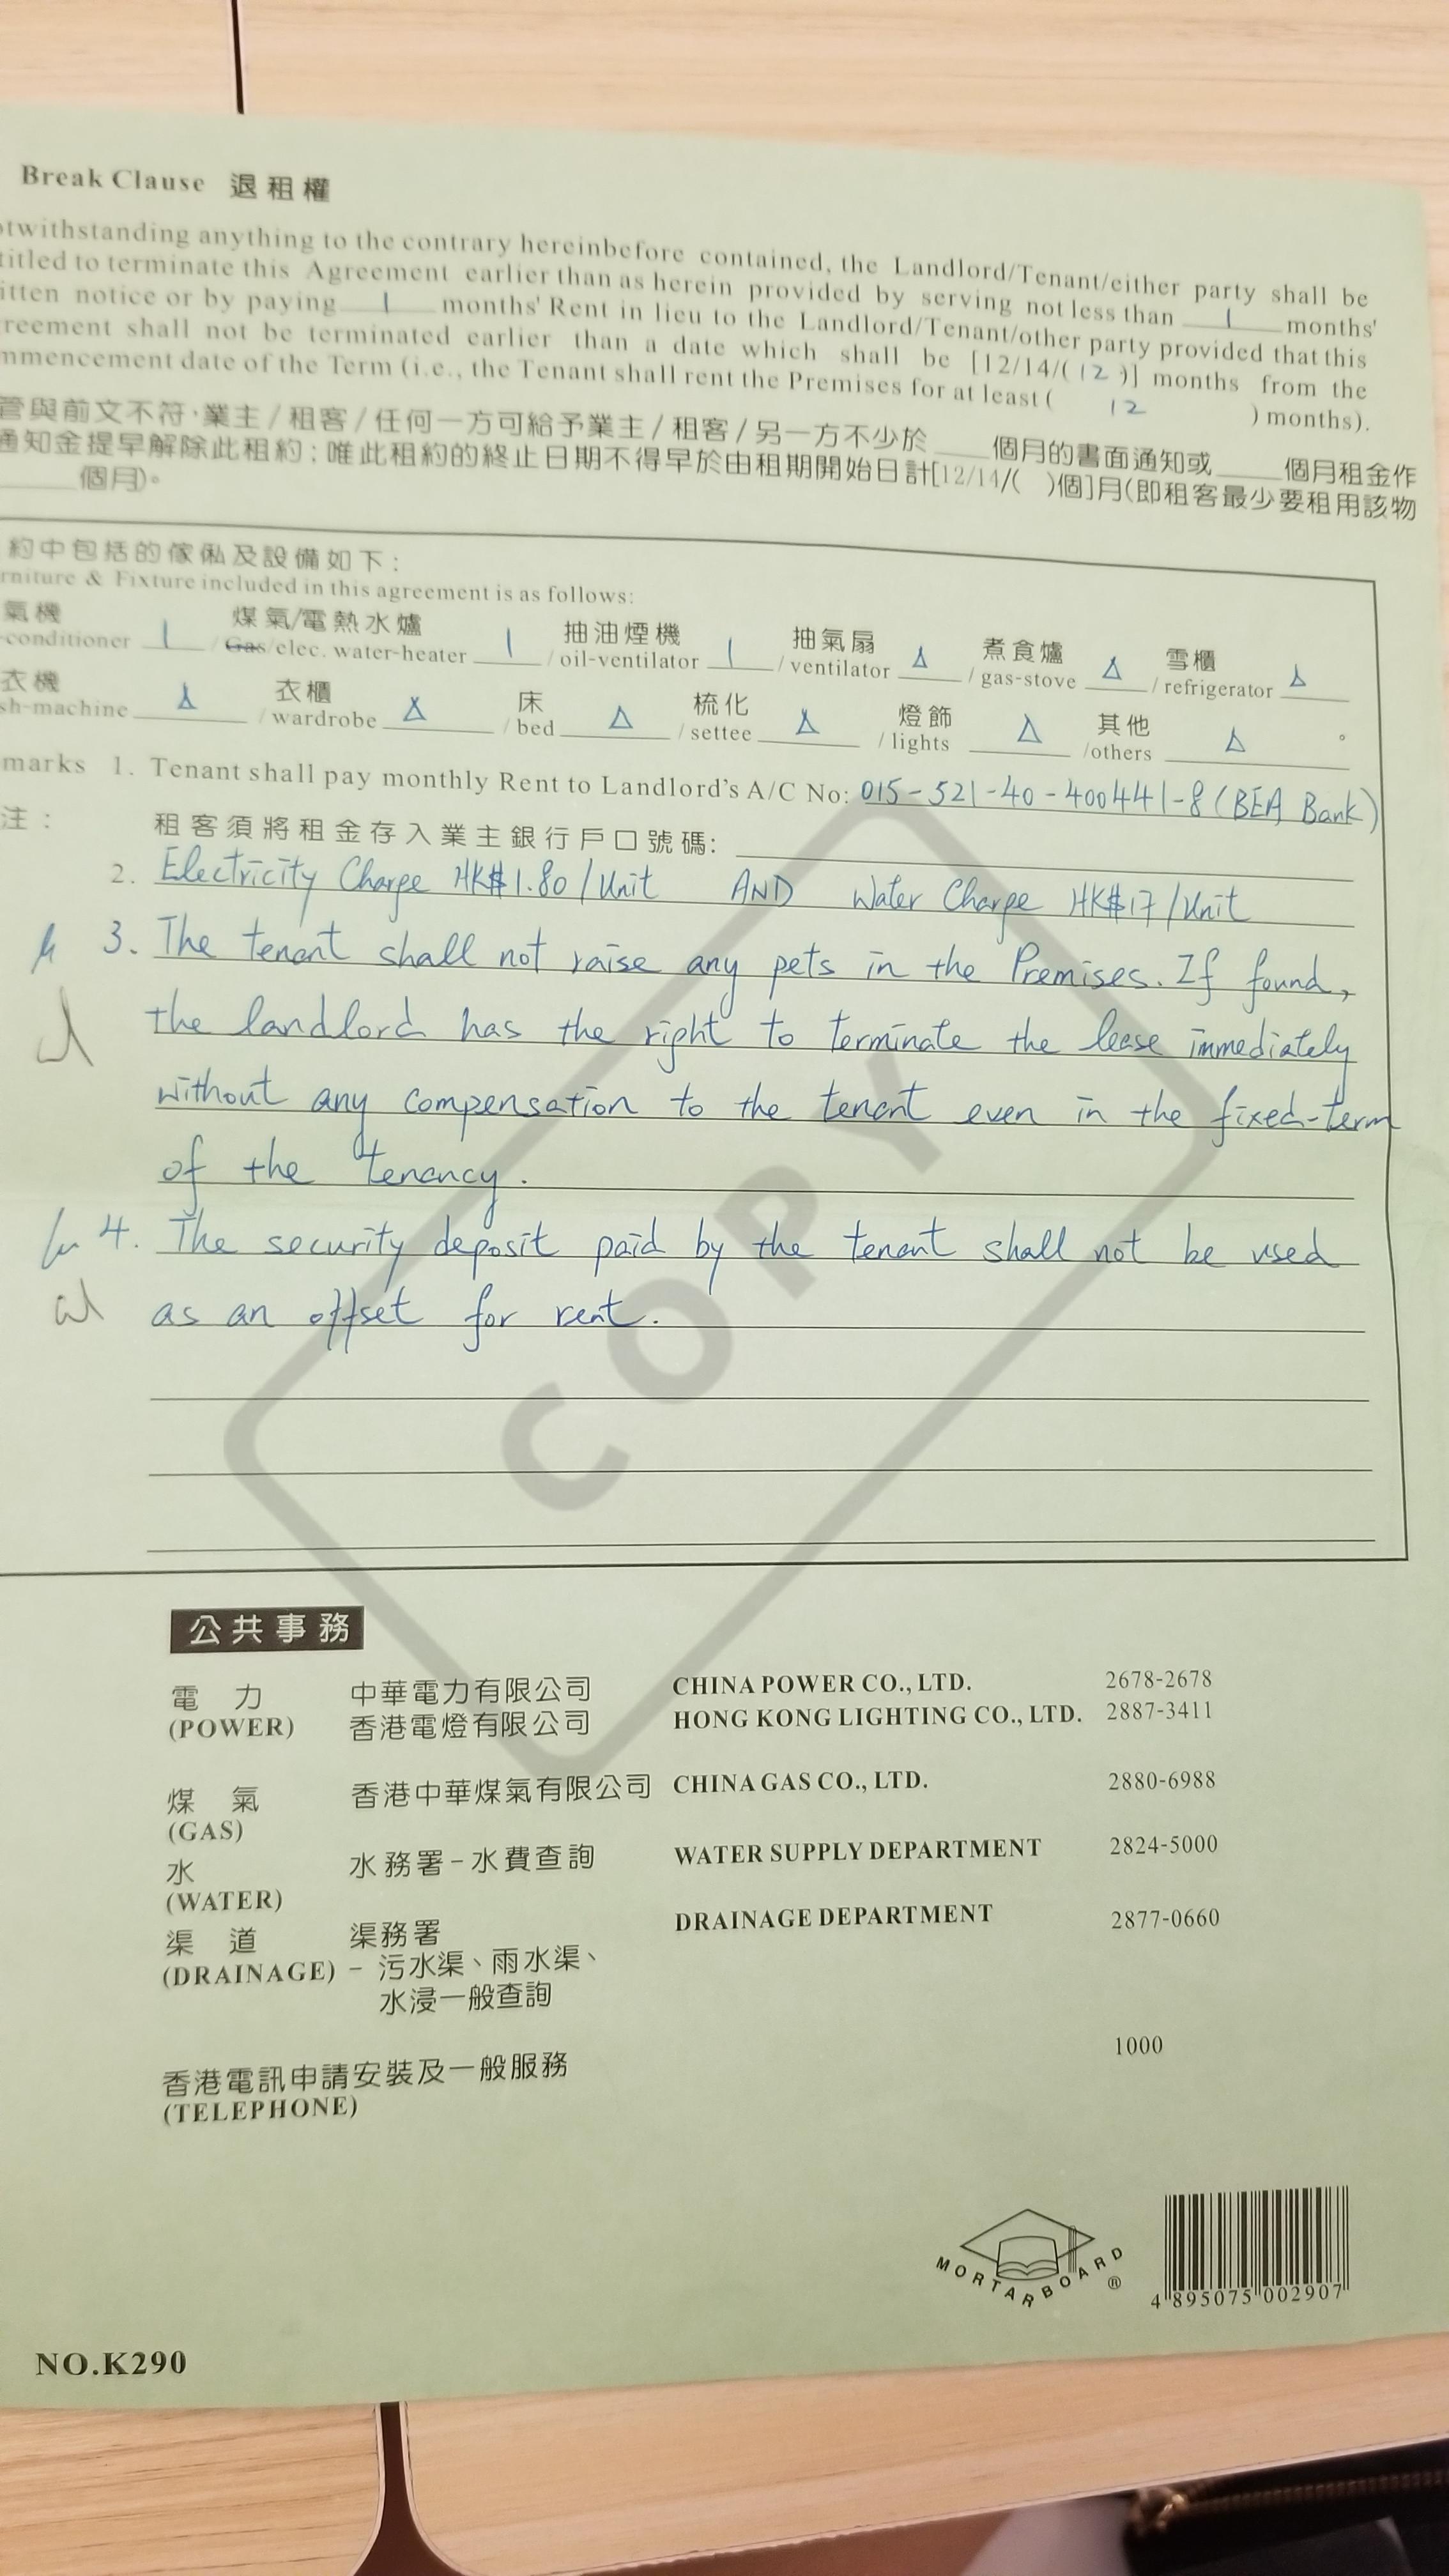 Break Clause 退租權
otwithstanding anything to the contrary hereinbefore contained, the Landlord/Tenant/either party shall be
titled to terminate this Agreement earlier than as herein provided by serving not less than 1 months'
itten notice or by paying 1 months' Rent in lieu to the Landlord/Tenant/other party provided that this
reement shall not be terminated earlier than a date which shall be [12/14/(12)] months from the
mmencement date of the Term (i.e., the Tenant shall rent the Premises for at least ( 12 ) months).
管與前文不符,業主/租客/任何一方可給予業主/租客/另一方不少於____個月的書面通知或____個月租金作
通知金提早解除此租約;唯此租約的終止日期不得早於由租期開始日計[12/14/( )個]月(即租客最少要租用該物
____個月)。
約中包括的傢俬及設備如下:
rniture & Fixture included in this agreement is as follows:
氣機 煤氣/電熱水爐 抽油煙機 抽氣扇 煮食爐 雪櫃
-conditioner 1 / Gas/elec. water-heater 1 / oil-ventilator 1 / ventilator / gas-stove / refrigerator
衣機 衣櫃 床 梳化 燈飾 其他
sh-machine / wardrobe / bed / settee / lights /others 。
marks 1. Tenant shall pay monthly Rent to Landlord's A/C No: 015-521-40-400441-8 (BEA Bank)
注: 租客須將租金存入業主銀行戶口號碼:
2. Electricity Charge HK$1.80/Unit AND Water Charge HK$17/Unit
3. The tenant shall not raise any pets in the Premises. If found,
the landlord has the right to terminate the lease immediately
without any compensation to the tenant even in the fixed-term
of the tenancy.
4. The security deposit paid by the tenant shall not be used
as an offset for rent.
COPY
公共事務
電力 中華電力有限公司 CHINA POWER CO., LTD. 2678-2678
(POWER) 香港電燈有限公司 HONG KONG LIGHTING CO., LTD. 2887-3411
煤氣 香港中華煤氣有限公司 CHINA GAS CO., LTD. 2880-6988
(GAS)
水 水務署-水費查詢 WATER SUPPLY DEPARTMENT 2824-5000
(WATER)
渠道 渠務署 DRAINAGE DEPARTMENT 2877-0660
(DRAINAGE) - 污水渠、雨水渠、
水浸一般查詢
香港電訊申請安裝及一般服務 1000
(TELEPHONE)
MORTARBOARD ®
4 895075 002907
NO.K290